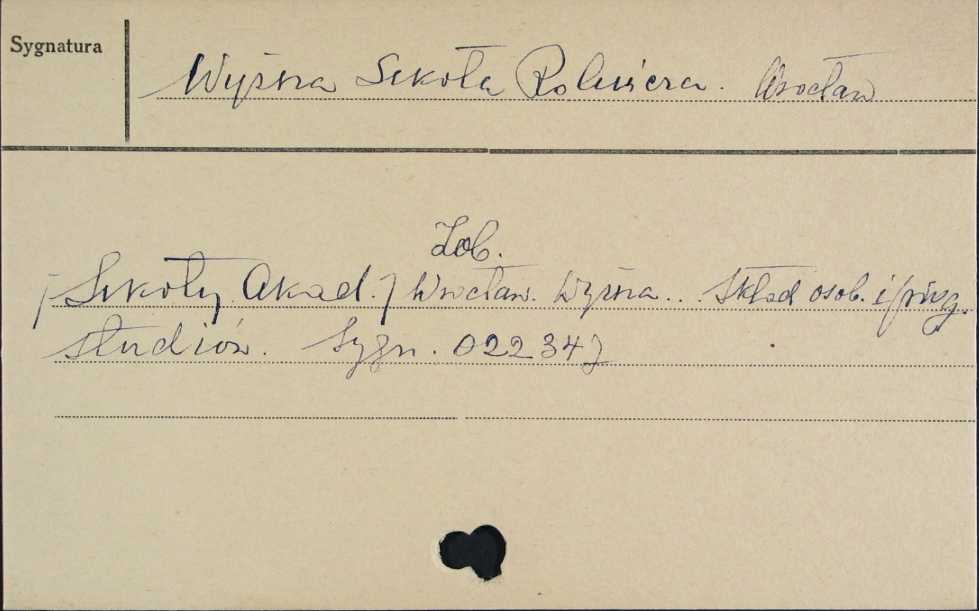 Sygnatura
Wyższa Szkoła Rolnicza. Wrocław
Zob.
/Szkoły Akad./ Wrocław. Wyższa.. Skład osob. i prog.
studiów. Sygn. 022347